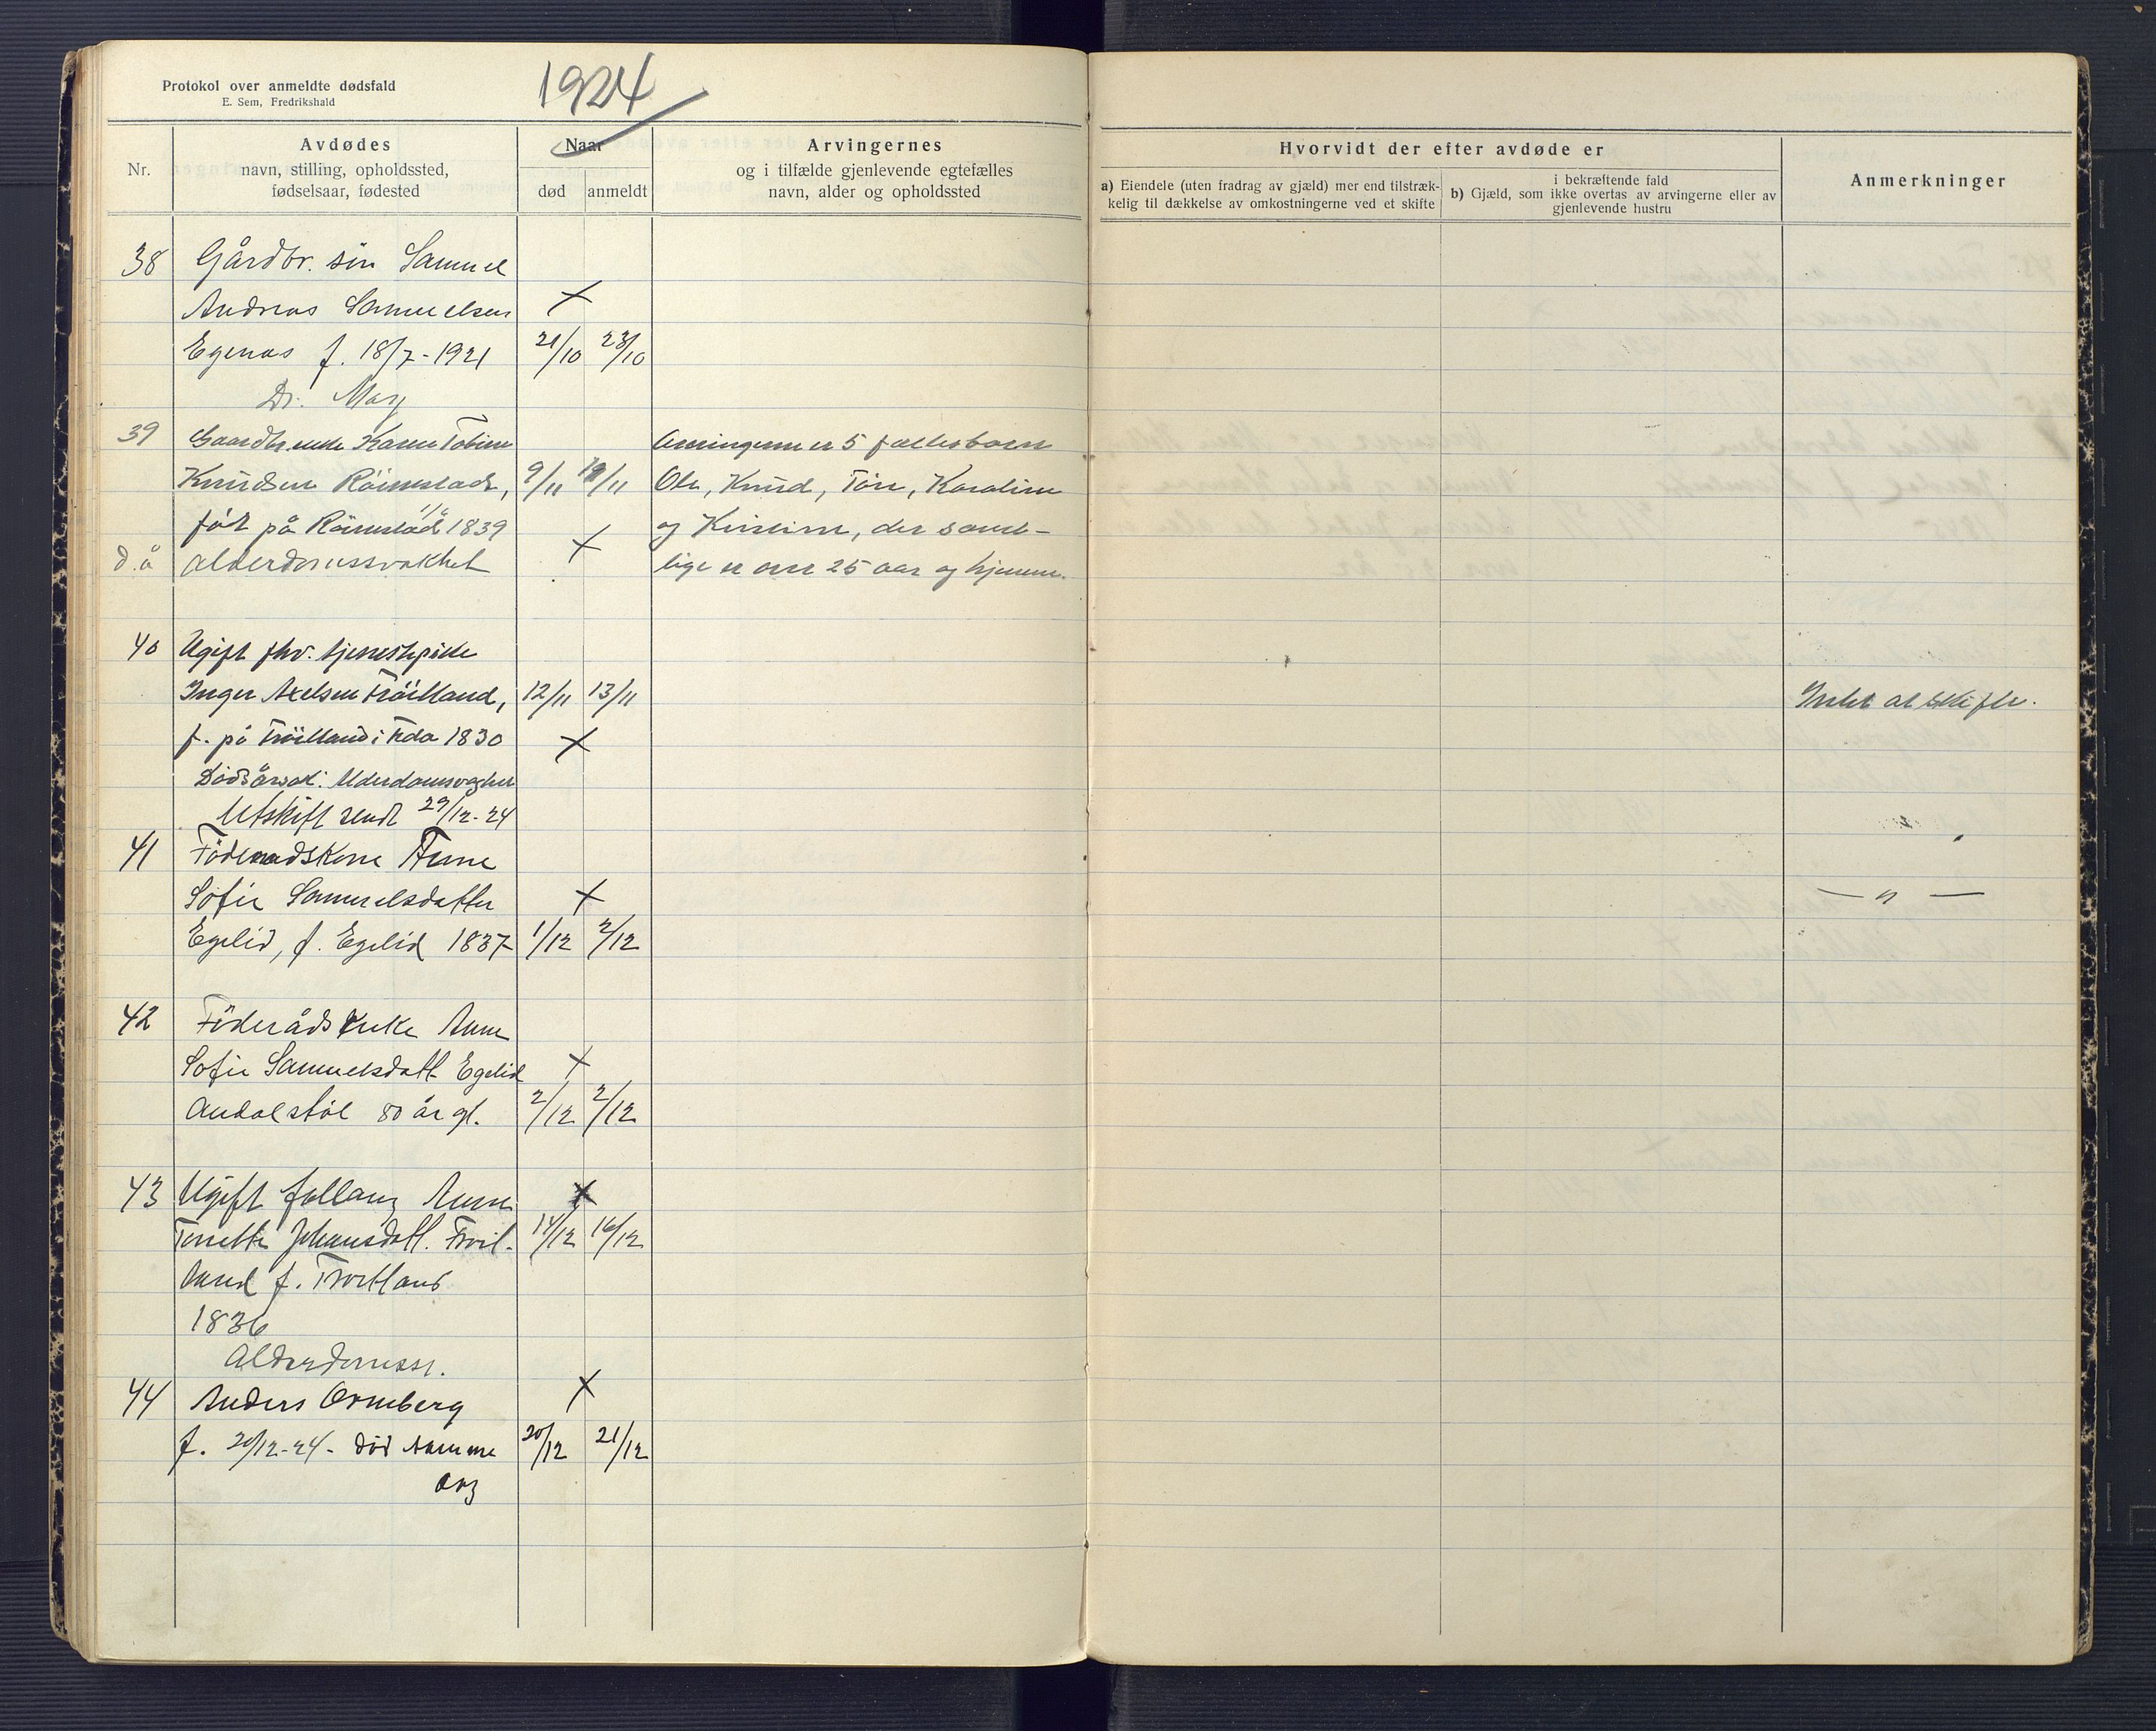 Protokol over anmeldte dødsfald
E. Sem, Fredrikshald
1924
Nr.
Avdødes
navn, stilling, opholdssted,
fødselsaar, fødested
Naar
død
anmeldt
Arvingernes
og i tilfælde gjenlevende egtefælles
navn, alder og opholdssted
Hvorvidt der efter avdøde er
a) Eiendele (uten fradrag av gjæld) mer end tilstræk-
kelig til dækkelse av omkostningerne ved et skifte
i bekræftende fald
b) Gjæld, som ikke overtas av arvingerne eller av
gjenlevende hustru
Anmerkninger
38 Gårdbr. sön Samuel
Andreas Samuelsen ×
Egenes f. 18/7-1921 21/10 23/10
Dr.
39 Gaardbr.enke Karen Tobine Arvingerne er 5 fællesbarn
Knudsen Röinestad, 9/11 /11 Ole, Knud, Töre, Karoline
föt på Röinestad 1839 og Kirstine, der samt-
d.å alderdomssvakhet × lige er over 25 aar og hjemme.
40 Ugift fhv. tjenestepike
Inger Axelsen Tröilland, 12/11 13/11 Intet at skifte.
f. på Tröilland i Feda 1830 ×
Dödsårsak: Alderdomssvaghet
Utskift sendt 29/12-24
41 Föderaadskone Anne
Sofie Samuelsdatter × — " —
Egelid, f. Egelid 1837 1/12 2/12
42 Föderådsenke Anne
Sofie Samuelsdatt. Egelid ×
80 år gl. 2/12 2/12
43 Ugift fattiglem Anne ×
Tonette Johansdatt. Tröil- 14/12 16/12
land f. Tröilland
1836
Alderdomssv.
44 Anders Ormberg ×
f. 20/12-24- död samme 20/12 21/12
dag